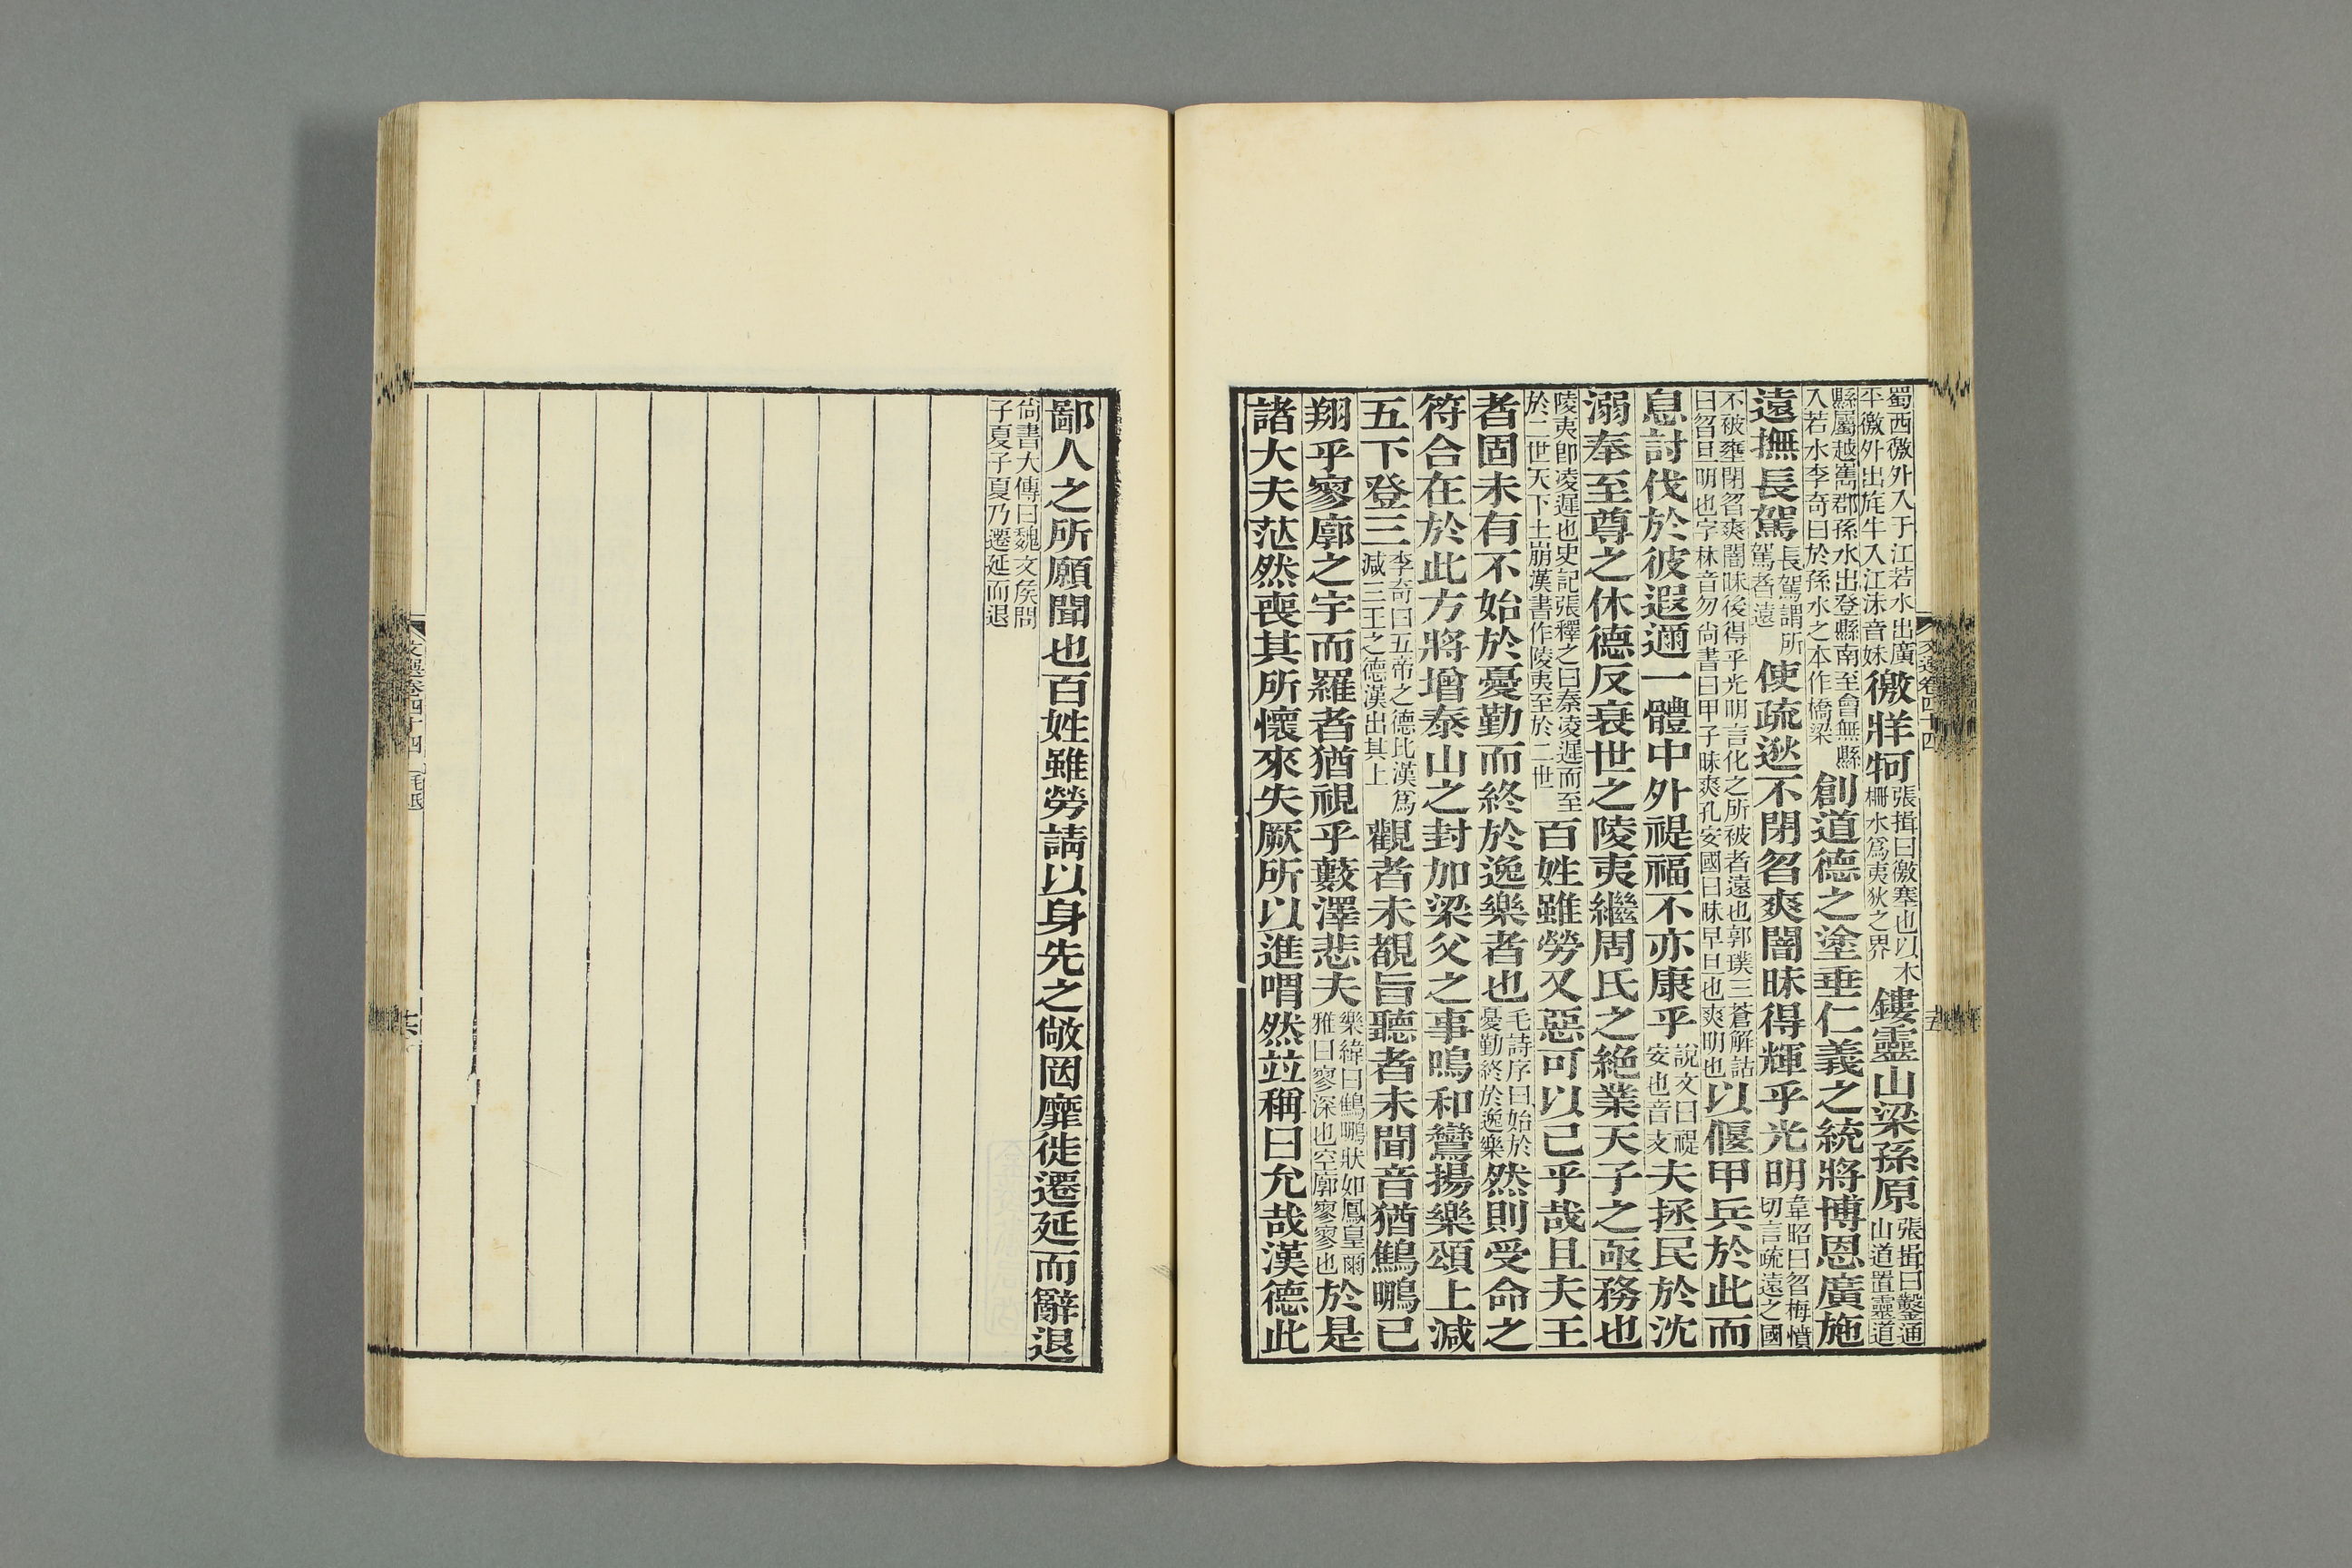 蜀西徼外入于江若水出廣
平徼外出旄牛入江沬音妹徼牂牁張揖曰徼塞也以木
柵水爲夷狄之界鏤靈山梁孫原張揖曰鑿通
山道置靈道
縣屬越嶲郡孫水出登縣南至會無縣
入若水李奇曰於孫水之本作橋梁創道德之塗垂仁義之統將博恩廣施
遠撫長駕長駕謂所
駕者遠使疏逖不閉曶爽闇昧得輝乎光明韋昭曰曶梅憤
切言疏遠之國
不被壅閉曶爽闇昧後得乎光明言化之所被者遠也郭璞三蒼解詁
曰曶旦明也字林音勿尙書曰甲子昧爽孔安國曰昧早旦也爽明也以偃甲兵於此而
息討伐於彼遐邇一體中外禔福不亦康乎說文曰禔
安也音支夫拯民於沈
溺奉至尊之休德反衰世之陵夷繼周氏之絕業天子之亟務也
陵夷卽凌遲也史記張釋之曰秦凌遲而至
於二世天下土崩漢書作陵夷至於二世百姓雖勞又惡可以已乎哉且夫王
者固未有不始於憂勤而終於逸樂者也毛詩序曰始於
憂勤終於逸樂然則受命之
符合在於此方將增泰山之封加梁父之事鳴和鸞揚樂頌上減
五下登三李奇曰五帝之德比漢爲
減三王之德漢出其上觀者未覩旨聽者未聞音猶鷦鵬已
翔乎寥廓之宇而羅者猶視乎藪澤悲夫樂緯曰鷦鵬狀如鳳皇爾
雅曰寥深也空廓寥寥也於是
諸大夫茫然喪其所懷來失厥所以進喟然並稱曰允哉漢德此
文選卷四十四
十五
鄙人之所願聞也百姓雖勞請以身先之敞罔靡徙遷延而辭退
尙書大傳曰魏文矦問
子夏子夏乃遷延而退
文選卷四十四
十六